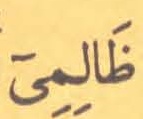 ظَالِمِيٓ